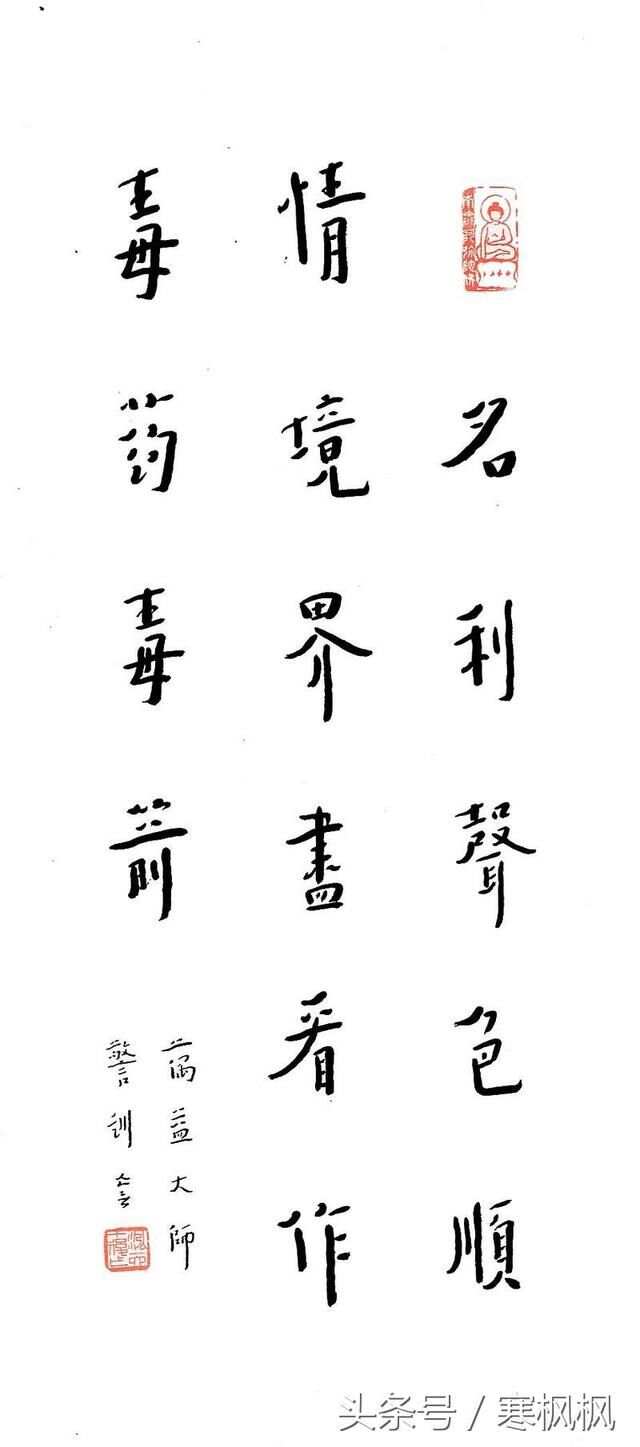 名利聲色順
情境界盡看作
毒葯毒箭
蕅益大師
警訓
头条号 / 寒枫枫